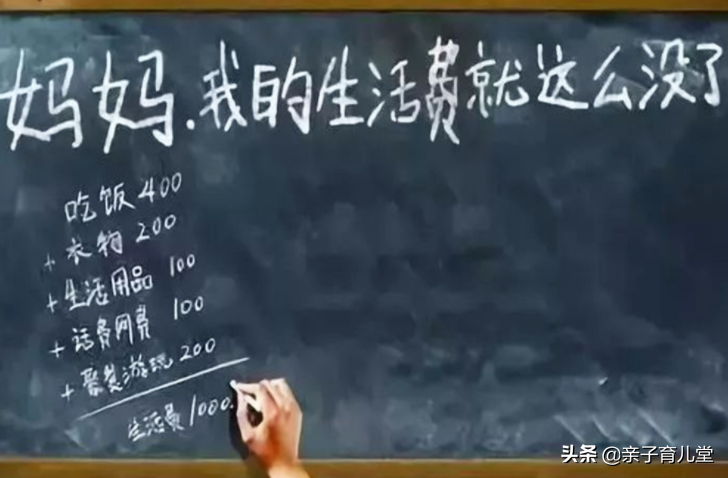 妈妈.我的生活费就这么没了
吃饭 400
+ 衣物 200
+ 生活用品 100
+ 话费网费 100
+ 聚餐游玩 200
生活费 1000.
头条 @亲子育儿堂